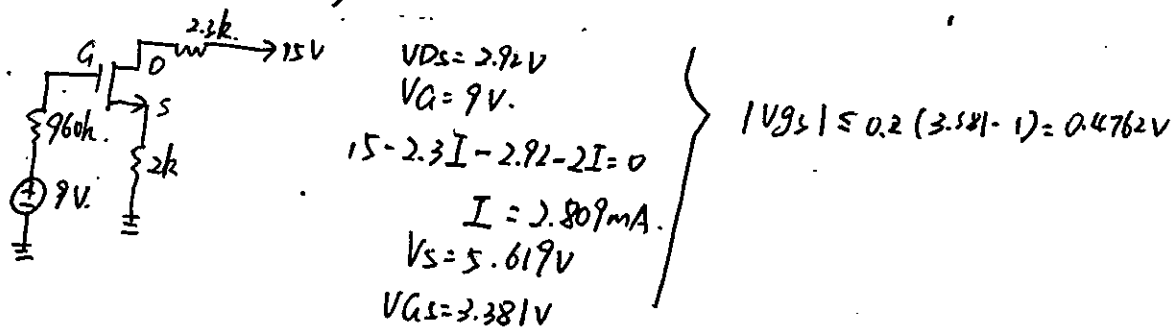 2.3k.
G
D
15V
S
960k.
2k
9V.
VDS = 2.92V
VG = 9V.
15-2.3I-2.92-2I=0
I = 2.809mA.
VS = 5.619V
VGS = 3.381V
|Vgs| ≤ 0.2 (3.381-1) = 0.4762V